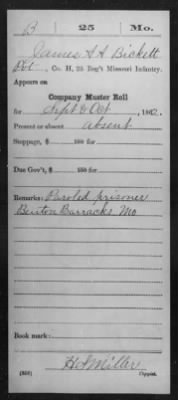 B 25 Mo.
James A A Bickett
Pvt, Co. H, 25 Reg't Missouri Infantry.
Appears on
Company Muster Roll
for Sept & Oct, 1862.
Present or absent absent
Stoppage, $ 100 for
Due Gov't, $ 100 for
Remarks: Paroled prisoner
Benton Barracks, Mo
Book mark:
H A Miller
(358) Copyist.